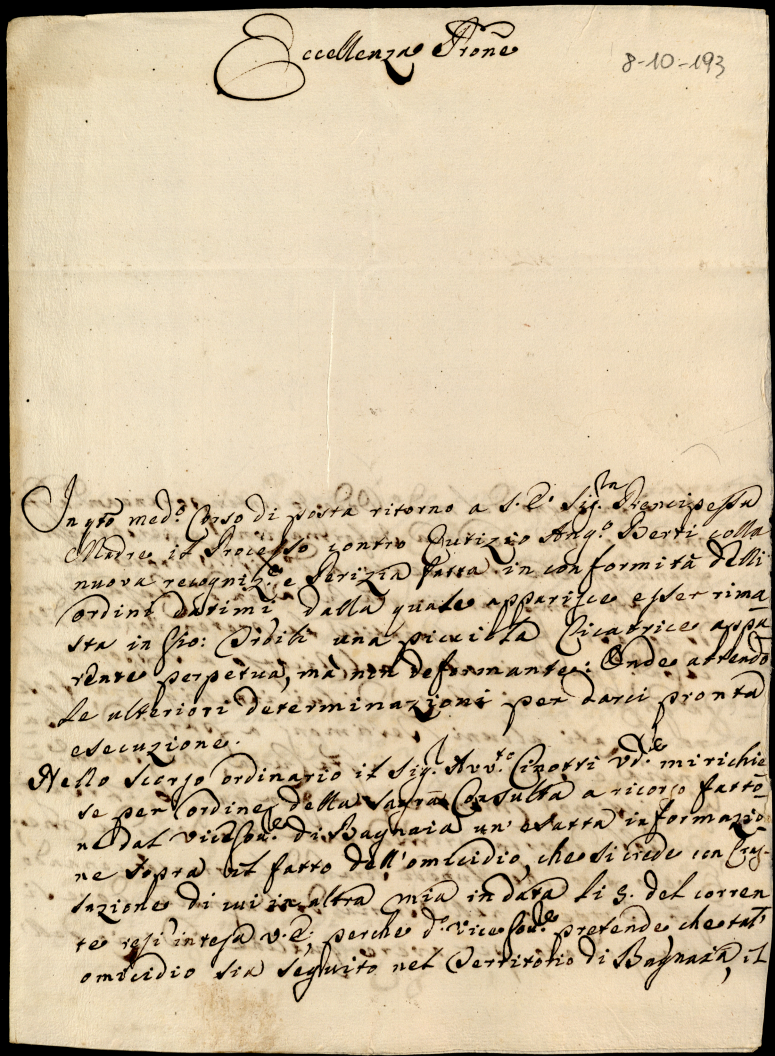 Eccellenza Prone
8-10-193
In qto med.o Corso di posta ritorno a S. E. Sig.ra Prencipessa
Madre il Processo contro Eutizio Ang.o Berti colla
nuova recogniz.e e Perizia fatta in conformità delli
ordini datimi, dalla quale apparisce esser rima=
sta in Gio: Orioli una piccióla Cicatrice appa=
rente perpetua, mà non deformante: Onde attendo
le ulteriori determinazioni per darci pronta
esecuzione.
Nello scorso ordinario il Sig.r Avv.to Cinotti Vd.e mi richie=
se per ordine della Sagra Consulta a ricorso fatto=
ne dal ViceGov.re di Bagnaia un' esatta informazio=
ne sopra il fatto dell'omicidio, che si crede con
di cui in altra mia in data li 5. del corren=
te resi intesa V.E., perche d.o Vice Gov.re pretende che tal'
omicidio sia seguito nel Territorio di Bagnaia, il